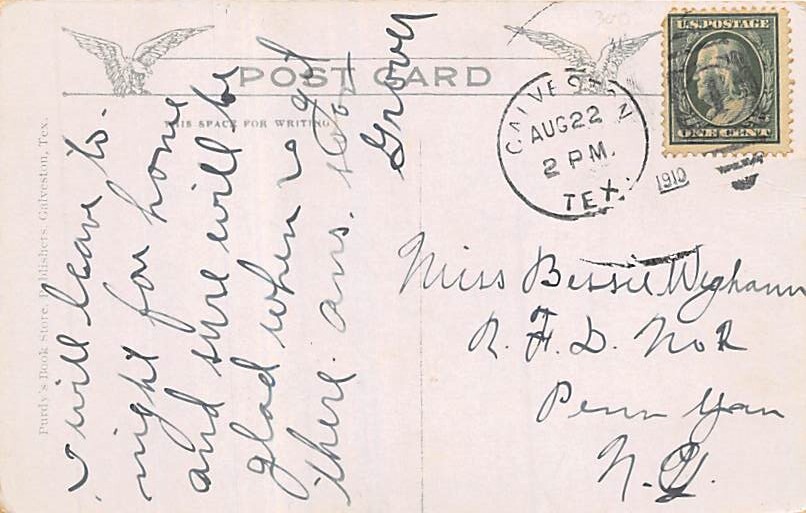 POST CARD
THIS SPACE FOR WRITING
Purdy's Book Store, Publishers, Galveston, Tex.
I will leave to-
night for home
and sure will be
glad when I get
there. ans. soon
Grover
GALVESTON
AUG 22
2 PM.
TEX.
1910
U.S. POSTAGE
ONE CENT
Miss Bessie
R. F. D. No
Penn Yan
N. Y.